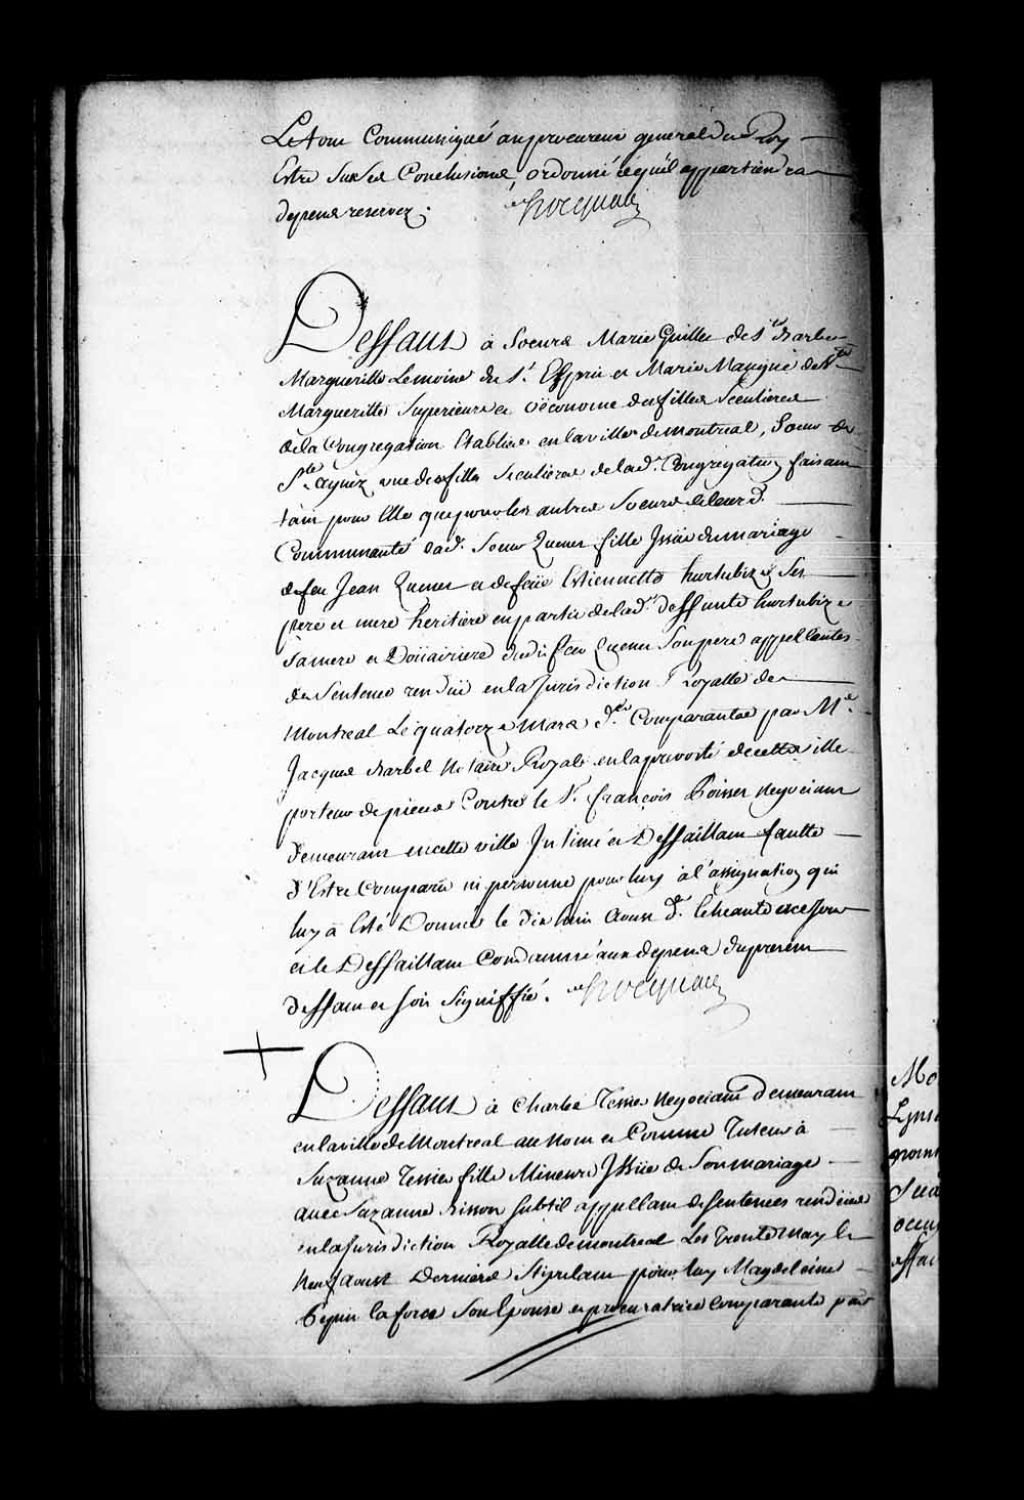 Le tout Communiqué au procureur general du Roy
Estre Sur ses Conclusions ordonné ce qu'il appartiendra
depens reservez. Hocquart
Deffaut à Soeurs Marie Guillet de Ste. Barbe
Margueritte Lemoine du St. Esprit et Marie de Ste.
Margueritte Superieure et oëconome des filles Seculieres
de la Congregation Etablies en la ville de Montreal, Soeur de
Ste. agnéz une des filles Seculieres de la d. Congregation faisant
tant pour Elle que pour les autres Soeurs de leur d.
Communauté la d. Soeur quenet fille Issüe du mariage
de feu Jean quenet et de feüe Estiennette hurtubize Ses
pere et mere heritiere en partie de la de. deffunte hurtubize
Sa mere et Doüairiere dud. feu quenet Son pere appellantes
de Sentence rendüe en la Jurisdiction Royalle de
Montreal Le quatorze Mars der. Comparantes par Me.
Jacques Barbel Notaire Royal en la prevosté de cette ville
porteur de pieces Contre le Sr. françois Poisset Negociant
demeurant en cette ville Intimé et Deffaillant faulte
d'Estre Comparu ni personne pour luy à l'assignation qui
luy à Esté Donnée le dix huit Aoust dr. Echeante à ce Jour
et le Deffaillant Condamné aux depens du present
deffaut et soit Signiffié. Hocquart
Deffaut à Charles Tessier Negociant Demeurant
en la ville de Montreal au Nom et Comme Tuteur à
Suzanne Tessier fille Mineure Issüe de Son mariage
avec Suzanne Subtil appellant de Sentences rendües
en la Jurisdiction Royalle de Montreal Les Trente May le
Neuf Aoust Derniers Stipulant pour luy Magdeleine
Pepin laforce Son Epouse et procuratrice comparante par